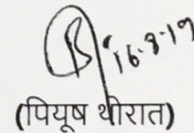 16.8.19
(पियूष थोरात)